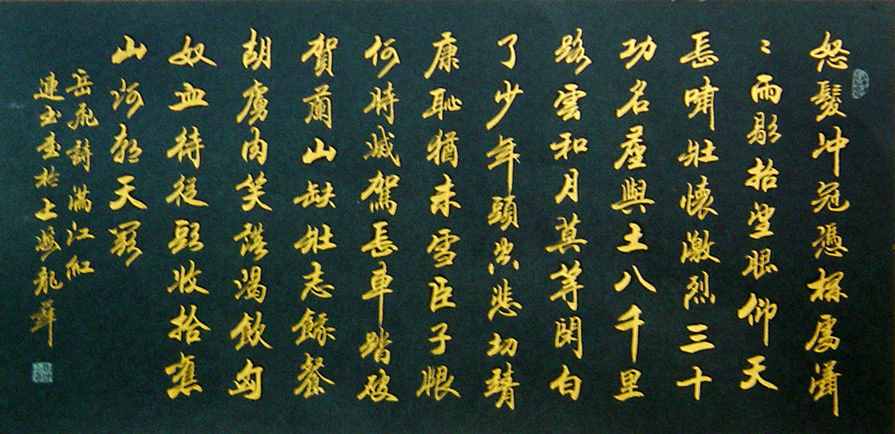 怒髮冲冠憑欄處瀟
〻雨歇抬望眼仰天
長嘯壯懷激烈三十
功名塵與土八千里
路雲和月莫等閑白
了少年頭空悲切靖
康恥猶未雪臣子恨
何時滅駕長車踏破
賀蘭山缺壯志飢餐
胡虜肉笑談渴飲匈
奴血待從頭收拾舊
山河朝天闕
岳飛詩滿江紅
連書於上海龍華